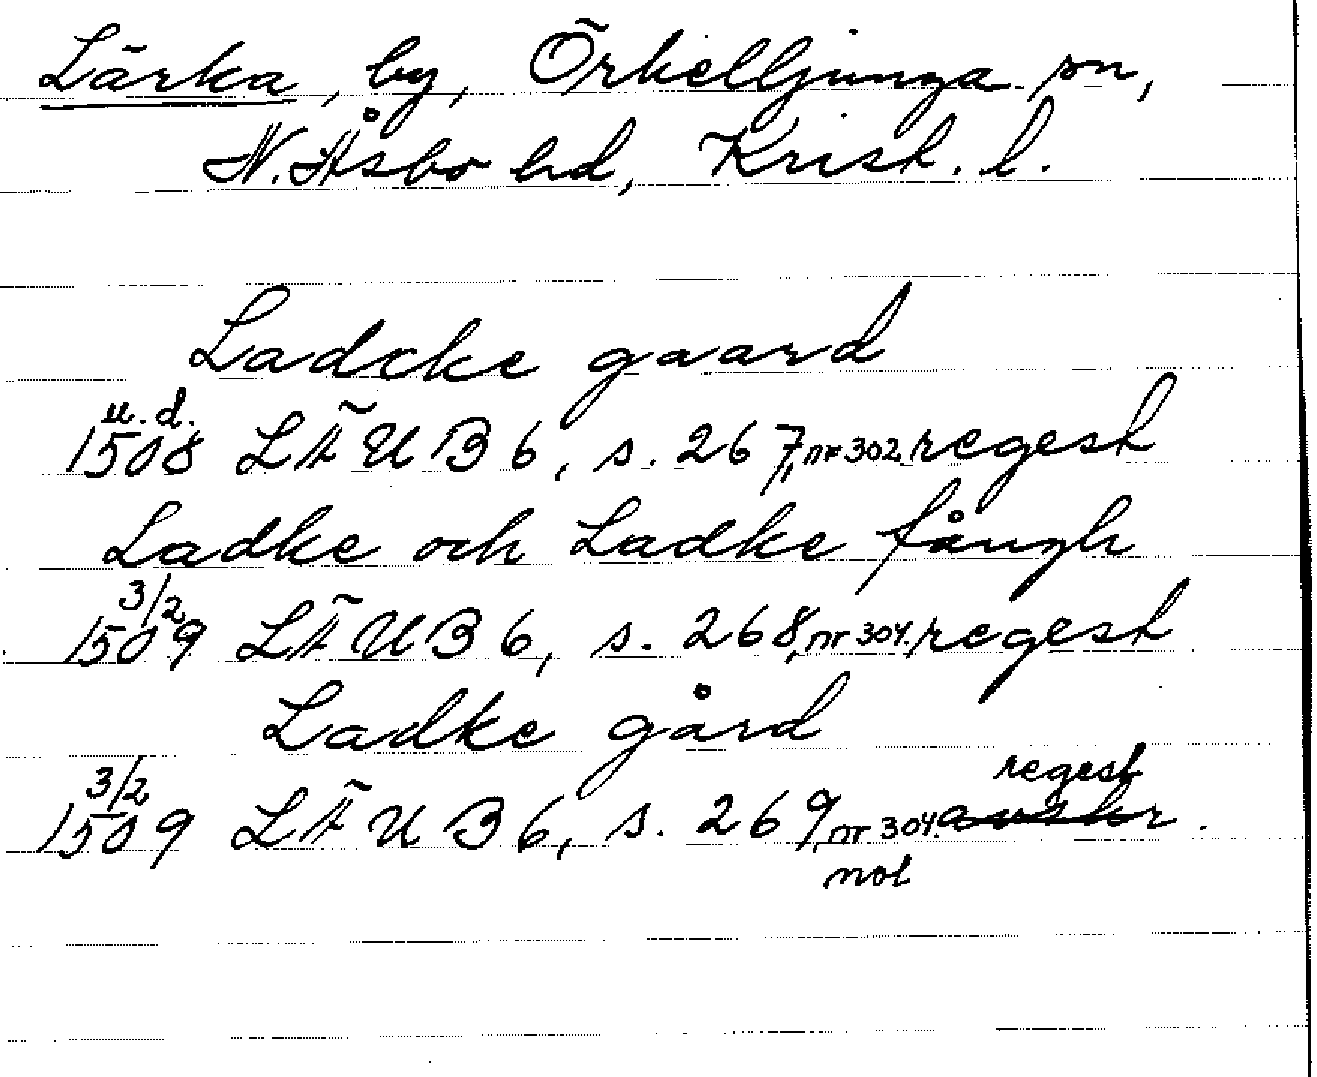 Lärka, by, Örkelljunga sn,
N. Åsbo hd, Krist. l.
Ladcke gaard
u. d.
1508 LÄUB 6, s. 267, nr 302, regest
Ladke och Ladke fångh
3/2
1509 LÄUB 6, s. 268, nr 304. regest
Ladke gård
3/2 regest
1509 LÄUB 6, s. 269, nr 304. avskr.
not